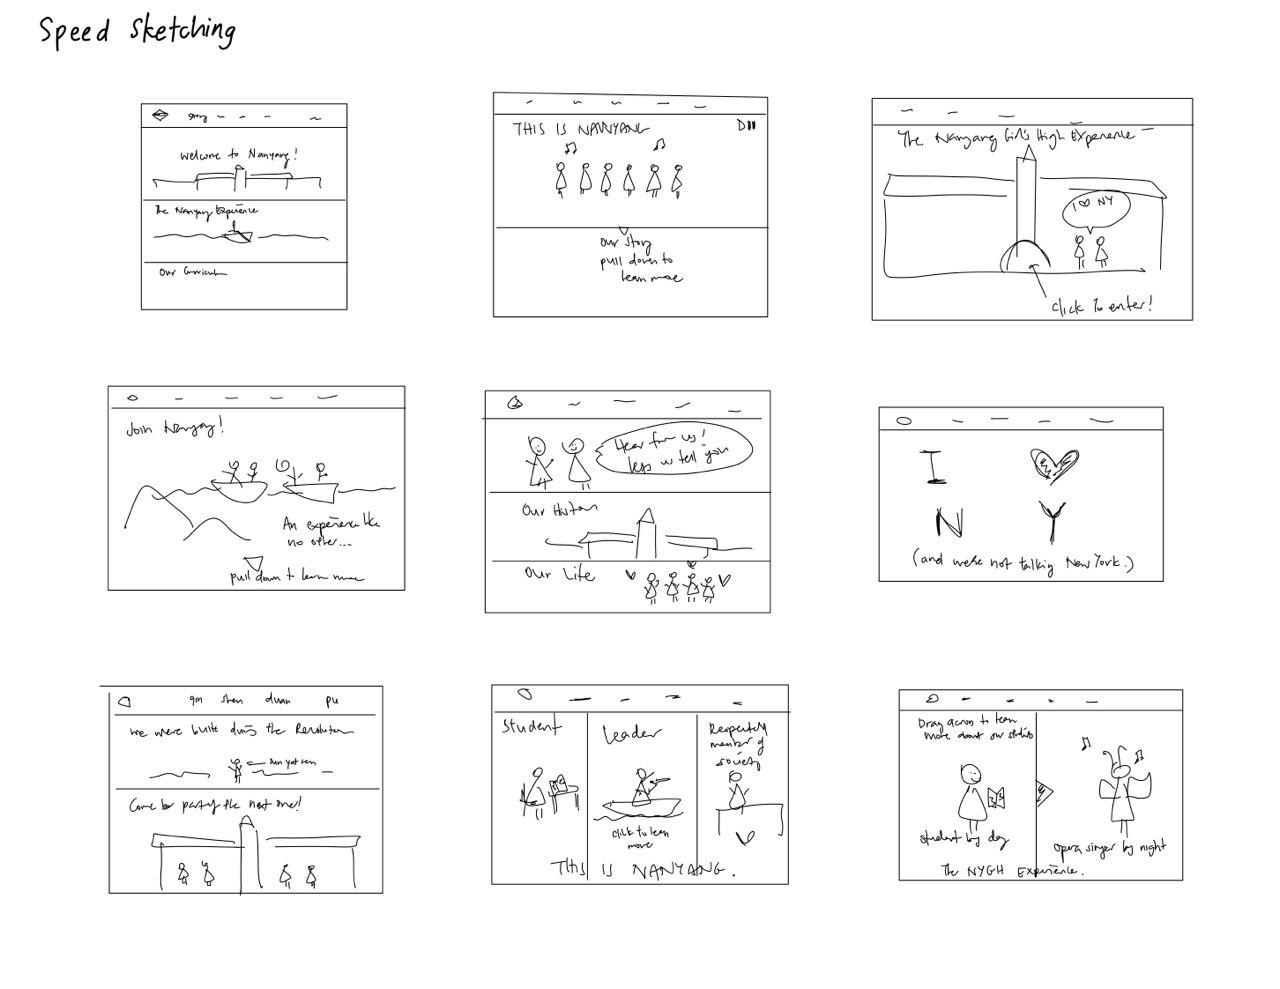 Speed Sketching
story
Welcome to Nanyang!
The Nanyang Experience
Our Curriculum
THIS IS NANYANG
our story
pull down to
learn more
The Nanyang Girls High Experience
I ♡ NY
click to enter!
Join Nanyang!
An experience like
no other...
pull down to learn more
Hear from us!
tell you
Our History
Our Life
I
N Y
(and we're not talking New York.)
qin shen duan pu
We were built during the Revolution
sun yat sen
Come be part of the next one!
Student
Leader
member of
society
click to learn
more
THIS IS NANYANG.
Drag across to learn
more about our students
student by day
opera singer by night
The NYGH Experience.